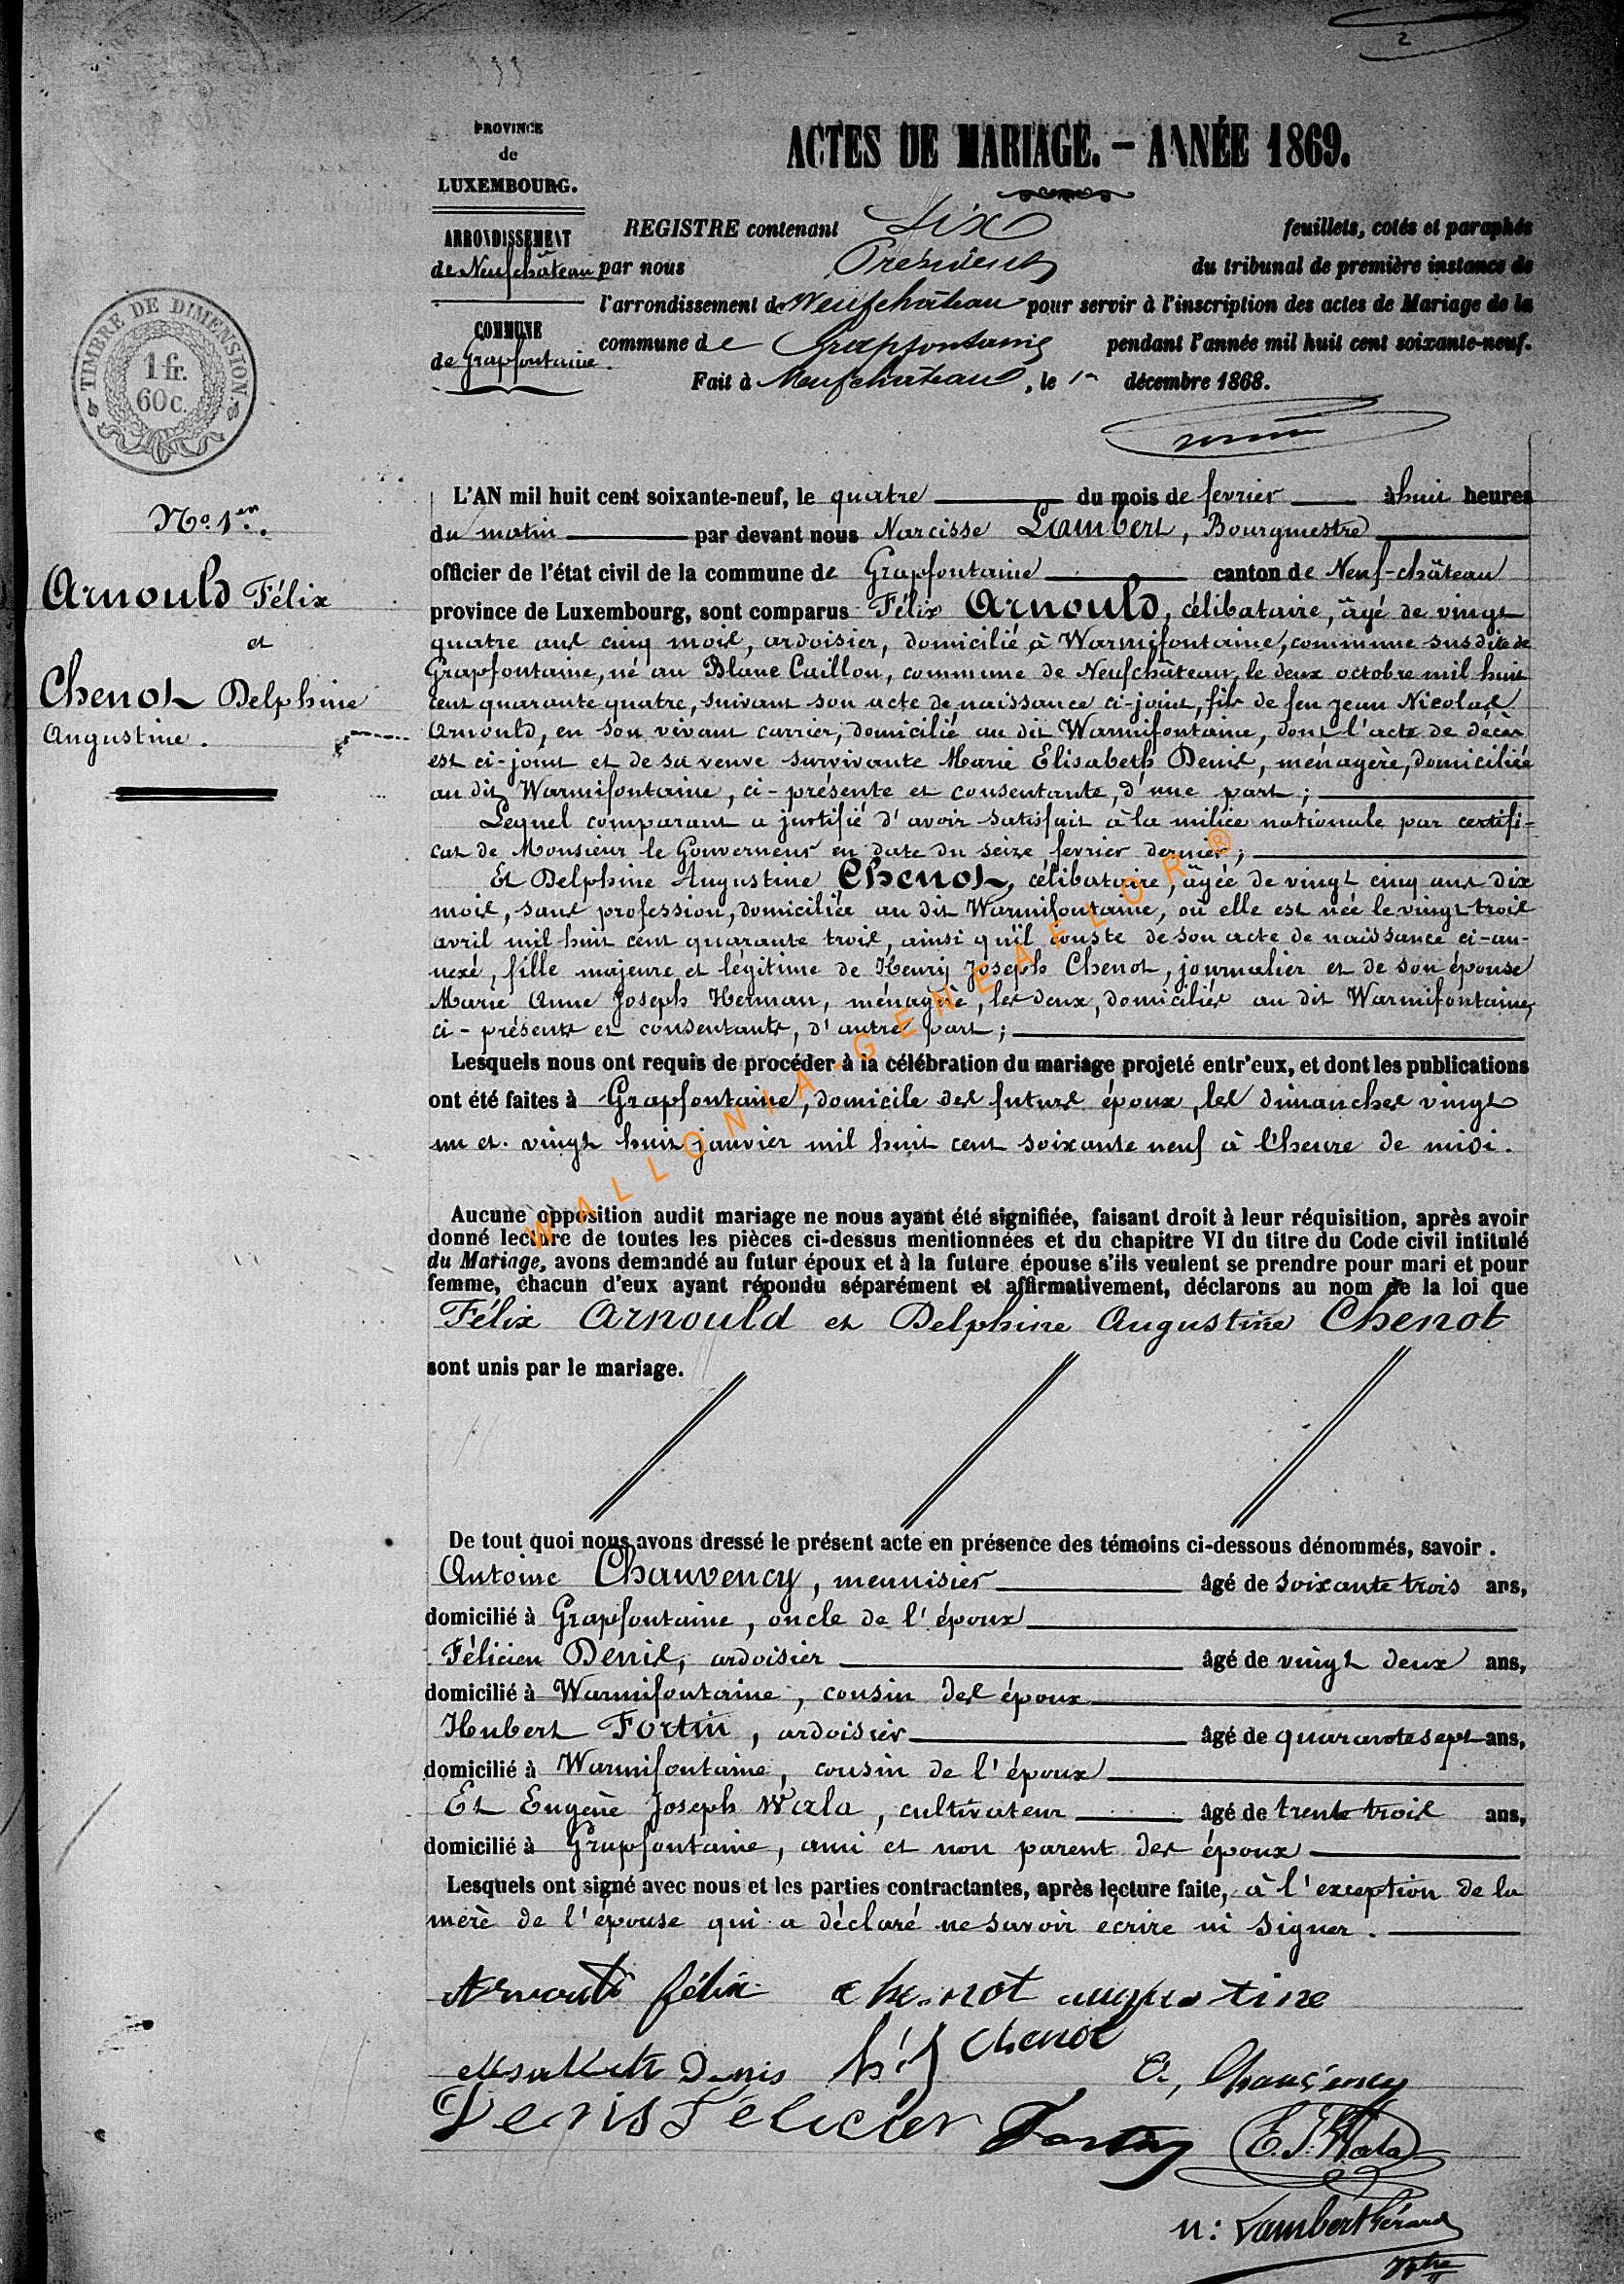 2
PROVINCE
de
LUXEMBOURG.
ARRONDISSEMENT
de Neufchâteau
COMMUNE
de Grapfontaine.
ACTES DE MARIAGE. – ANNÉE 1869.
REGISTRE contenant Six feuillets, cotés et paraphés
par nous Président du tribunal de première instance de
l'arrondissement de Neufchâteau pour servir à l'inscription des actes de Mariage de la
commune de Grapfontaine pendant l'année mil huit cent soixante-neuf.
Fait à Neufchâteau, le 1er décembre 1868.
TIMBRE DE DIMENSION.
1 fr.
60 c.
No. 1er.
Arnould Félix
et
Chenot Delphine
Augustine.
L'AN mil huit cent soixante-neuf, le quatre du mois de fevrier à huit heures
du matin par devant nous Narcisse Lambert, Bourgmestre
officier de l'état civil de la commune de Grapfontaine canton de Neuf-château
province de Luxembourg, sont comparus Félix Arnould, célibataire, âgé de vingt
quatre ans cinq mois, ardoisier, domicilié à Warmifontaine, commune susdite de
Grapfontaine, né au Blanc Caillou, commune de Neufchâteau, le deux octobre mil huit
cent quarante quatre, suivant son acte de naissance ci-joint, fils de feu Jean Nicolas
Arnould, en son vivant carrier, domicilié au dit Warmifontaine, dont l'acte de décès
est ci-joint et de sa veuve survivante Marie Elisabeth Denis, ménagère, domiciliée
au dit Warmifontaine, ci-présente et consentante, d'une part ;
Lequel comparant a justifié d'avoir satisfait à la milice nationale par certifi-
cat de Monsieur le Gouverneur en date du seize fevrier dernier ;
Et Delphine Augustine Chenot, célibataire, âgée de vingt cinq ans dix
mois, sans profession, domiciliée au dit Warmifontaine, où elle est née le vingt trois
avril mil huit cent quarante trois, ainsi qu'il conste de son acte de naissance ci-an-
nexé, fille majeure et légitime de Henry Joseph Chenot, journalier et de son épouse
Marie Anne Joseph Herman, ménagère, les deux, domiciliés au dit Warmifontaine,
ci-présents et consentants, d'autre part ;
Lesquels nous ont requis de procéder à la célébration du mariage projeté entr'eux, et dont les publications
ont été faites à Grapfontaine, domicile des futurs époux, les dimanches vingt
un et vingt huit janvier mil huit cent soixante neuf à l'heure de midi.
Aucune opposition audit mariage ne nous ayant été signifiée, faisant droit à leur réquisition, après avoir
donné lecture de toutes les pièces ci-dessus mentionnées et du chapitre VI du titre du Code civil intitulé
du Mariage, avons demandé au futur époux et à la future épouse s'ils veulent se prendre pour mari et pour
femme, chacun d'eux ayant répondu séparément et affirmativement, déclarons au nom de la loi que
Félix Arnould et Delphine Augustine Chenot
sont unis par le mariage.
De tout quoi nous avons dressé le présent acte en présence des témoins ci-dessous dénommés, savoir .
Antoine Chauvency, menuisier âgé de soixante trois ans,
domicilié à Grapfontaine, oncle de l'époux
Félicien Denis, ardoisier âgé de vingt deux ans,
domicilié à Warmifontaine, cousin des époux
Hubert Fortin, ardoisier âgé de quarante sept ans,
domicilié à Warmifontaine, cousin de l'époux
Et Eugène Joseph Wala, cultivateur âgé de trente trois ans,
domicilié à Grapfontaine, ami et non parent des époux
Lesquels ont signé avec nous et les parties contractantes, après lecture faite, à l'exception de la
mère de l'épouse qui a déclaré ne savoir écrire ni signer.
Arnould félix chenot augustine
Denis h. j chenot A, Chauvency
Denis Félicien Fortin E. J. Wala
N: Lambert Gérard
WALLONIA-GENEAFLOR®